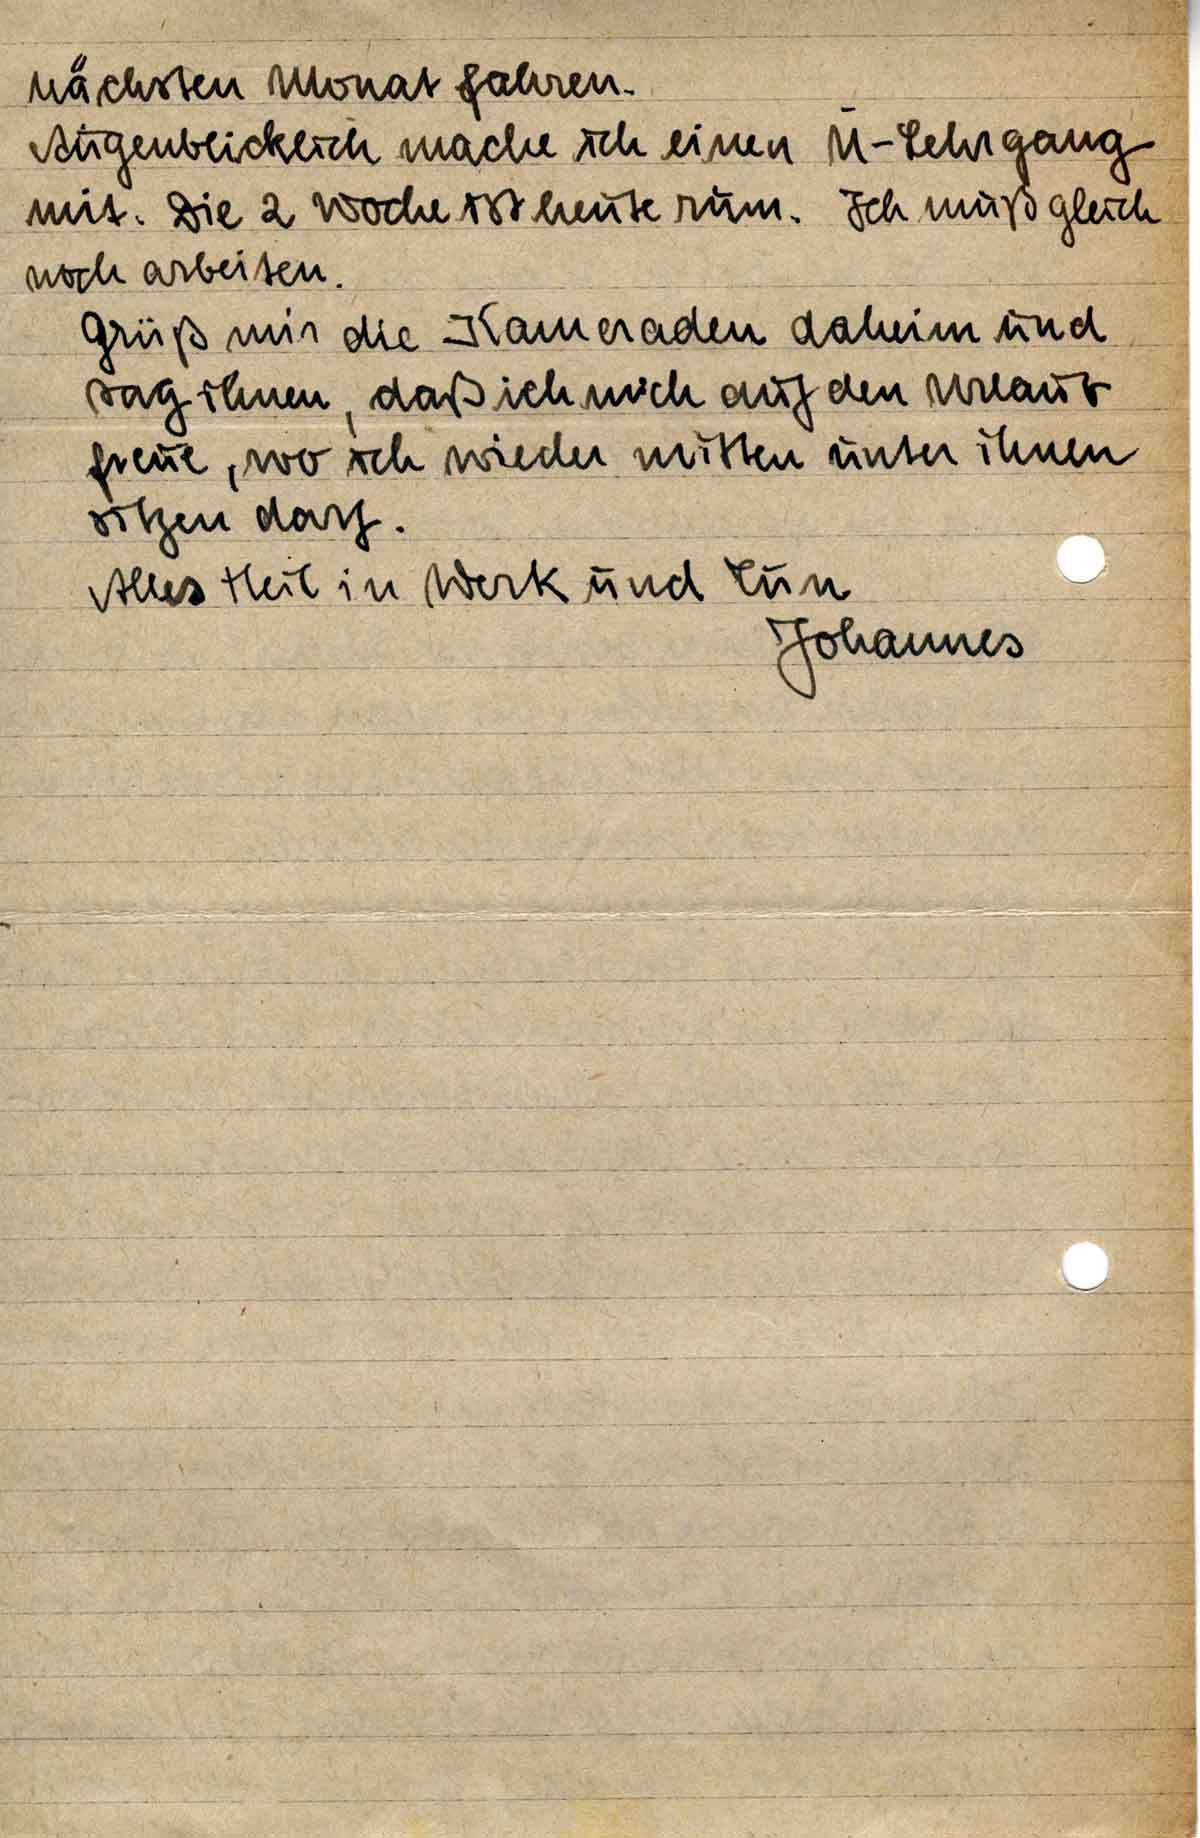 nächsten Monat fahren.
Augenblicklich mache ich einen U-Lehrgang
mit. Die 2 Woche ist heute rum. Ich muß gleich
noch arbeiten.
Grüß mir die Kameraden daheim und
sag ihnen, daß ich mich auf den Urlaub
freue, wo ich wieder mitten unter ihnen
sitzen darf.
Alles Heil in Werk und Tun
Johannes